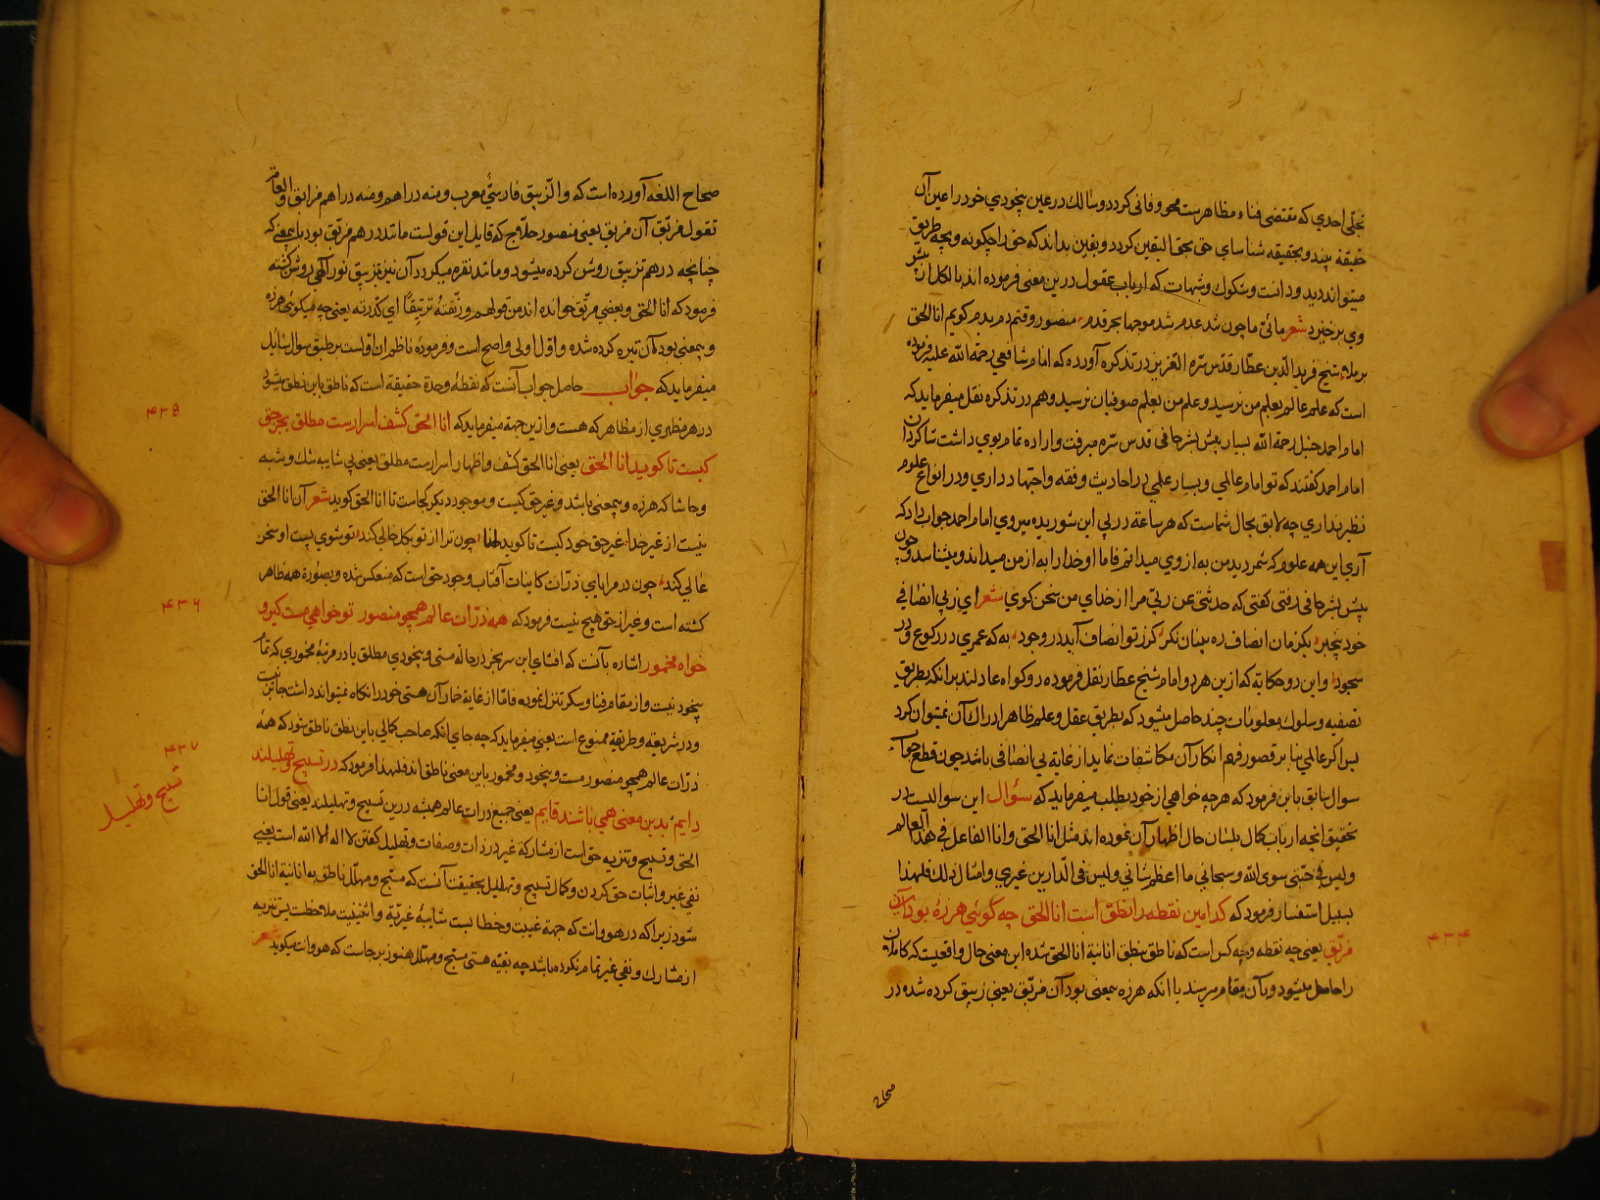 تجلّی احدی که مقتضی فناء مظاهرست محو و فانی کردد و سالك در عین بیخودی خود را عین آن
حقیقه بیند و بحقیقه شناسای حق بحق الیقین کردد و یقین بداند که حق را چکونه و بچه طریق
میتواند دید و دانست و شکوك و شبهات که ارباب عقول درین معنی فرموده اند بالکل از پیش
وی برخیزد شعر مائی ما چون شد عدم شد موجها بحر قدم منصور وقتم دم بدم کویم انا الحق
برملا شیخ فرید الدین عطار قدس سره العزیز در تذکره آورده که امام شافعی رحمة الله علیه فرموده
است که علم عالم بعلم من نرسید و علم من بعلم صوفیان نرسید و هم در تذکره نقل میفرماید که
امام احمد حنبل رحمة الله بسیار پیش بشر حافی قدس سره میرفت و اراده تمام بوی داشت شاکردان
امام احمد کفتند که تو امام عالمی و بسیار علمی در احادیث و فقه و اجتهاد داری و در انواع علوم
نظیر نداری چه لایق بحال شماست که هر ساعة در پی این شوریده میروی امام احمد جواب داد که
آری این همه علوم که شمردید من به از وی میدانم فاما او خدا را به از من میداند و میشناسد و چون
پیش بشر حافی رفتی کفتی که حدثنی عن ربی مرا از خدای من سخن کوی شعر ای ز پی انصافی
خود بیخبر یکزمان انصاف ره بینان نکر کر ز تو انصاف آید در وجود به که عمری در رکوع و در
سجود و این دو حکایة که ازین هر دو امام شیخ عطار نقل فرموده دو کواه عادلند بر انکه بطریق
تصفیه و سلوك معلومات چند حاصل میشود که بطریق عقل و علم ظاهر ادراك آن نمیتوان کرد
پس اکر عالمی بنا بر قصور فهم انکار آن مکاشفات نماید از غایة بی انصافی باشد چون قطع جواب
سوال سابق باین فرمود که هر چه خواهی از خود بطلب میفرماید که سؤال این سوالیست در
تحقیق انچه ارباب کمال بلسان حال اظهار آن نموده اند مثل انا الحق و انا الفاعل فی هذا العالم
و لیس فی جبتی سوی الله و سبحانی ما اعظم شانی و لیس فی الدارین غیری و امثال ذلك فلهذا
بسبیل استفسار فرمود که کدامین نقطه را نطق است انا الحق چه کوئی هرزهٔ بود آن
مزبق یعنی چه نقطه و چه کس است که ناطق بنطق انانیة انا الحق شده این معنی حال واقعیست که کاملان
را حاصل میشود و بآن مقام میرسند یا انکه هرزه بیمعنی بود آن مزبق یعنی زیبق کرده شده در
۴۳۴
صحاح
صحاح اللغه آورده است که والزیبق فارسی معرب و منه دراهم و منه دراهم مزابق والعام
تقول مزبق آن مزبق یعنی منصور حلاج که قایل این قولست مانند درهم مزبق بود باینمعنی که
چنانچه درهم بزیبق روشن کرده میشود و مانند نقره میکردد آن نیز بزیبق نور الهی روشن کشته
فرمود که انا الحق و بعضی مزنق خوانده اند من قولهم و زنقته تزنیقا ای کدرته یعنی چه میکوئی هرزه
و بیمعنی بود آن تیره کرده شده و اول اولی و اصح است و فرمودهٔ ناظم ان اولست بر طبق سوال سایل
میفرماید که جواب حاصل جواب آنست که نقطهٔ وحدة حقیقة است که ناطق باین نطق میشود
در هر مظهری از مظاهر که هست و ازین جهة میفرماید که انا الحق کشف اسرارست مطلق بجز حق
کیست تا کوید انا الحق یعنی انا الحق کشف و اظهار اسرارست مطلق یعنی بی شایبه شك و شبه
و حاشا که هرزه و بیمعنی باشد و غیر حق کیست و موجود دیکر کجاست تا انا الحق کوید شعر آن انا الحق
نیست از غیر خدا غیر حق خود کیست تا کوید انا چون ترا از تو بکل خالی کند تو شوی پست او سخن
عالی کند چون در مرایای ذرات کاینات آفتاب وجود حق است که منعکس شده و بصورة همه ظاهر
کشته است و غیر از حق هیچ نیست فرمود که همه ذرّات عالم همچو منصور تو خواهی مست کیر و
خواه مخمور اشاره بآنست که افشای این سر بجز در حالة مستی و بیخودی مطلق یا در مرتبهٔ مخموری که تمام
بیخود نیست و از مقام فنا و سکر تنزل نموده فاما از غایة خمار آن هستی خود را نکاه نمیتواند داشت جایز نیست
و در شریعة و طریقة ممنوع است یعنی میفرماید که چه جای انکه صاحب کمالی باین نطق ناطق شود که همهٔ
ذرّات عالم همچو منصور مست و بیخود و مخمور باین معنی ناطق اند فلهذا فرمود که در تسبیح و تهلیلند
دایم بدین معنی همی باشند قایم یعنی جمیع ذرات عالم همیشه درین تسبیح و تهلیلند یعنی قول انا
الحق و تسبیح و تنزیه حق است از مشارکة غیر در ذات و صفات و تهلیل کفتن لا اله الا الله است یعنی
نفی غیر و اثبات حق کردن و کمال تسبیح و تهلیل بحقیقت آنست که مسبح و مهلل ناطق به انانیة انا الحق
شود زیرا که در هو و انت که جهة غیبت و خطابست شایبهٔ غیریة و اثنینیت ملاحظست پس تنزیه
از مشارك و نفی غیر تمام نکرده باشد چه بقیّه هستی مسبح و مهلل هنوز برجاست که هو و انت میکوید شعر
۴۳۵
۴۳۶
۴۳۷
تسبیح و تهلیل